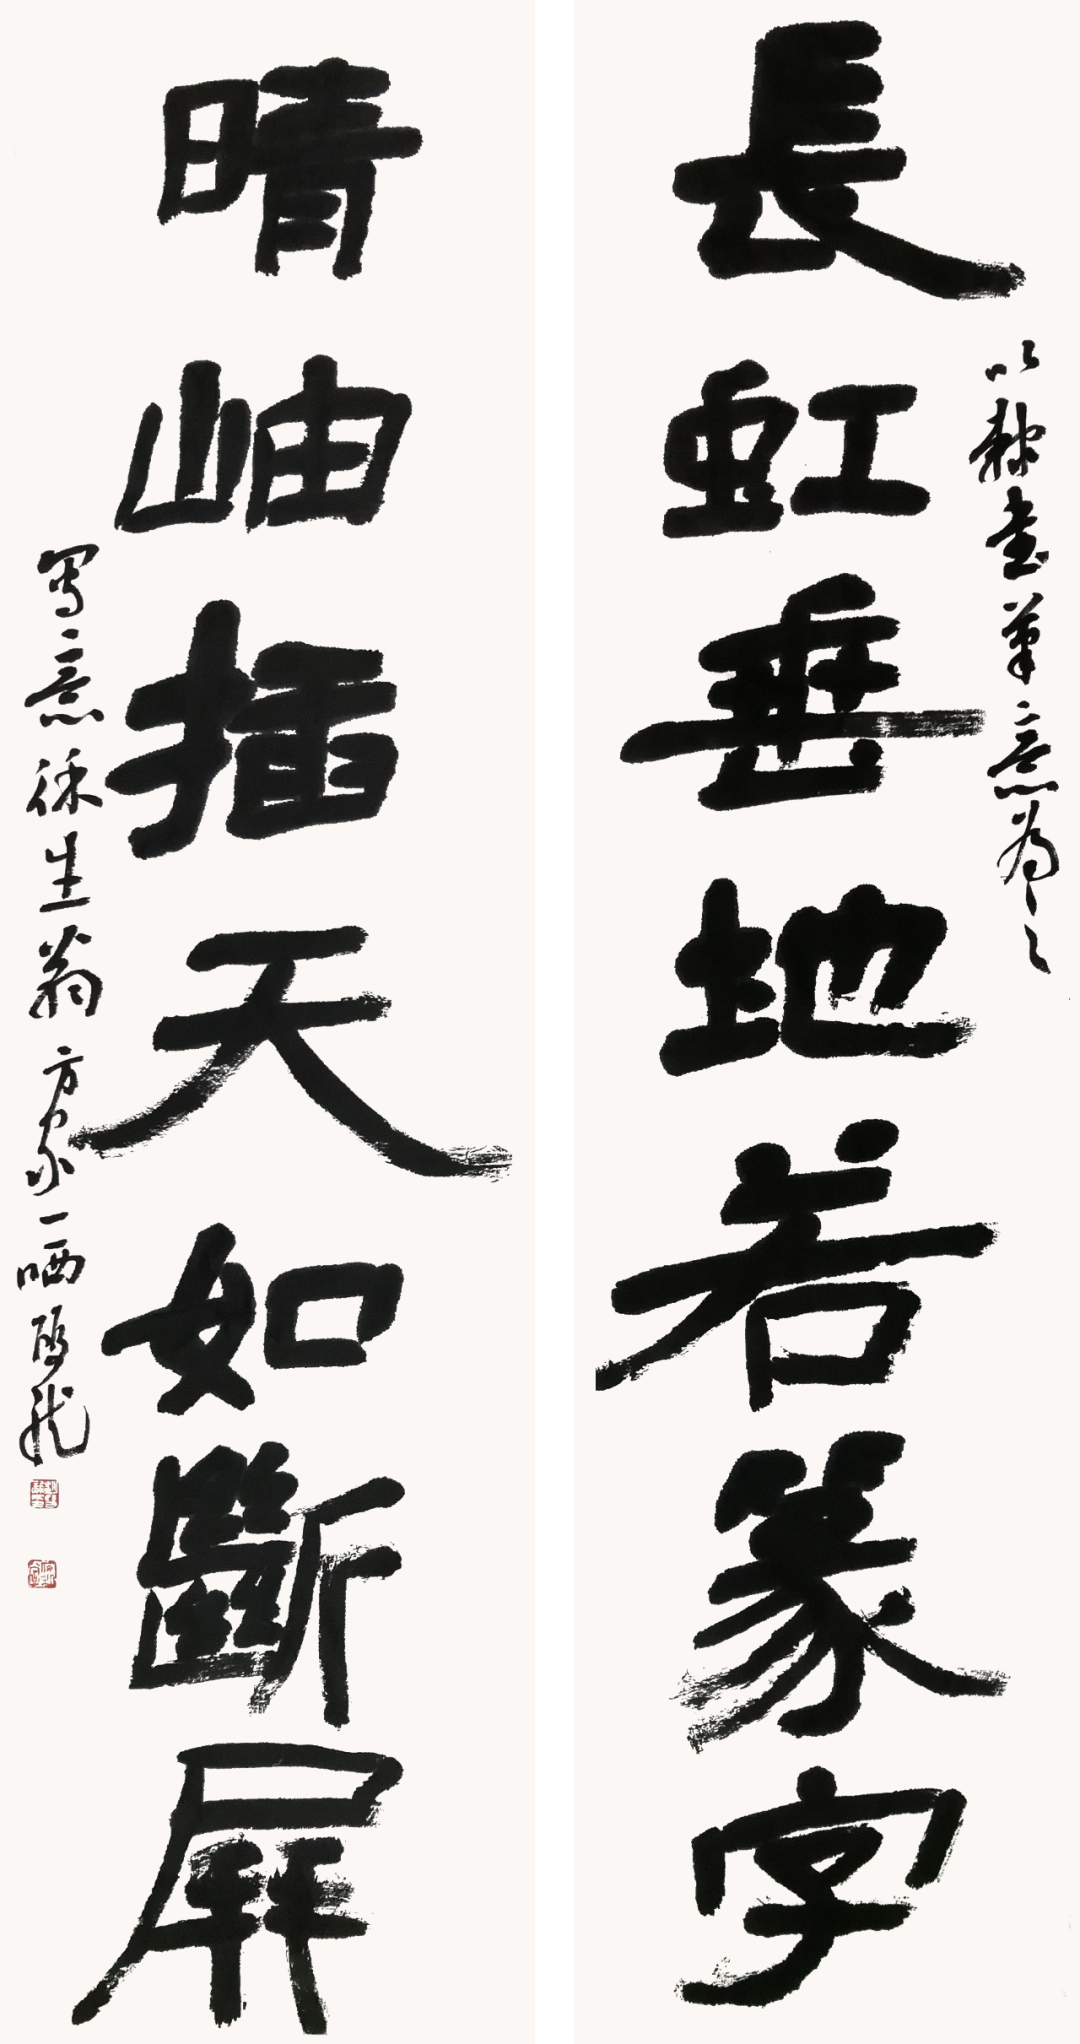 長虹垂地若篆字
以隸書筆意為之
晴岫插天如斷屏
寫意徐生翁方家一哂